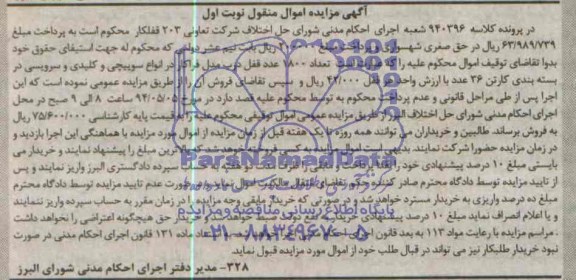 آگهی مزایده اموال منقول نوبت اول
در پرونده کلاسه ۹۴۰۳۹۶ شعبه اجرای احکام مدنی شورای حل اختلاف شرکت تعاونی ۲۰۳ قفلکار محکوم است به پرداخت مبلغ
۶۳/۹۸۹/۷۳۹ ریال در حق صفری شهسواری و پرداخت مبلغ ریال بابت نیم عشر دولتی که محکوم له جهت استیفای حقوق خود
بدوا تقاضای توقیف اموال محکوم علیه را تعداد ۱۸۰۰ عدد قفل درب مدل فراکار در انواع سوییچی و کلیدی و سرویسی در
بسته بندی کارتن ۳۶ عدد با ارزش واحد هر قفل ۴۲/۰۰۰ ریال و سپس تقاضای فروش آن را از طریق مزایده عمومی نموده است که این
اجرا پس از طی مراحل قانونی و عدم پرداخت محکوم به توسط محکوم علیه قصد دارد در مورخ ۹۴/۰۵/۰۵ ساعت ۸ الی ۹ صبح در محل
اجرای احکام مدنی شورای حل اختلاف البرز از طریق مزایده عمومی اموال توقیفی محکوم علیه را به قیمت پایه کارشناسی ۷۵/۶۰۰/۰۰۰ ریال
به فروش برساند. طالبین و خریداران می توانند همه روزه تا یک هفته قبل از زمان مزایده از اموال مورد مزایده با هماهنگی این اجرا بازدید و
در زمان مزایده حضور شرکت نمایند. بدیهی است اموال مزایده به کسی فروخته خواهد شد که بالاترین مبلغ را پیشنهاد نمایند و خریدار می
بایستی مبلغ ۱۰ درصد پیشنهادی خود را سپرده دادگستری البرز واریز نمایند و پس
از تایید مزایده توسط دادگاه محترم صادر کننده حکم تقاضای انتقال مالکیت اموال نماید. در صورت عدم تایید مزایده توسط دادگاه محترم
مبلغ ده درصد واریزی به خریدار مسترد خواهد شد و در صورتی که خریدار مابقی وجه مزایده را در زمان مقرر به حساب سپرده واریز ننمایند
و یا اعلام انصراف نماید مبلغ ۱۰ درصد پیشنهادی حق هیچگونه اعتراضی را نخواهد داشت
. مراسم مزایده با رعایت مواد ۱۱۳ به بعد قانون اجرای احکام ماده ۱۳۱ قانون اجرای احکام مدنی در صورت
نبود خریدار طلبکار نیز می تواند در قبال طلب خود از اموال مورد مزایده قبول نماید.
۳۲۸- مدیر دفتر اجرای احکام مدنی شورای البرز
ParsNamadData
پایگاه اطلاع رسانی مناقصه و مزایده
۰۲۱-۸۸۳۴۹۶۷۰-۵